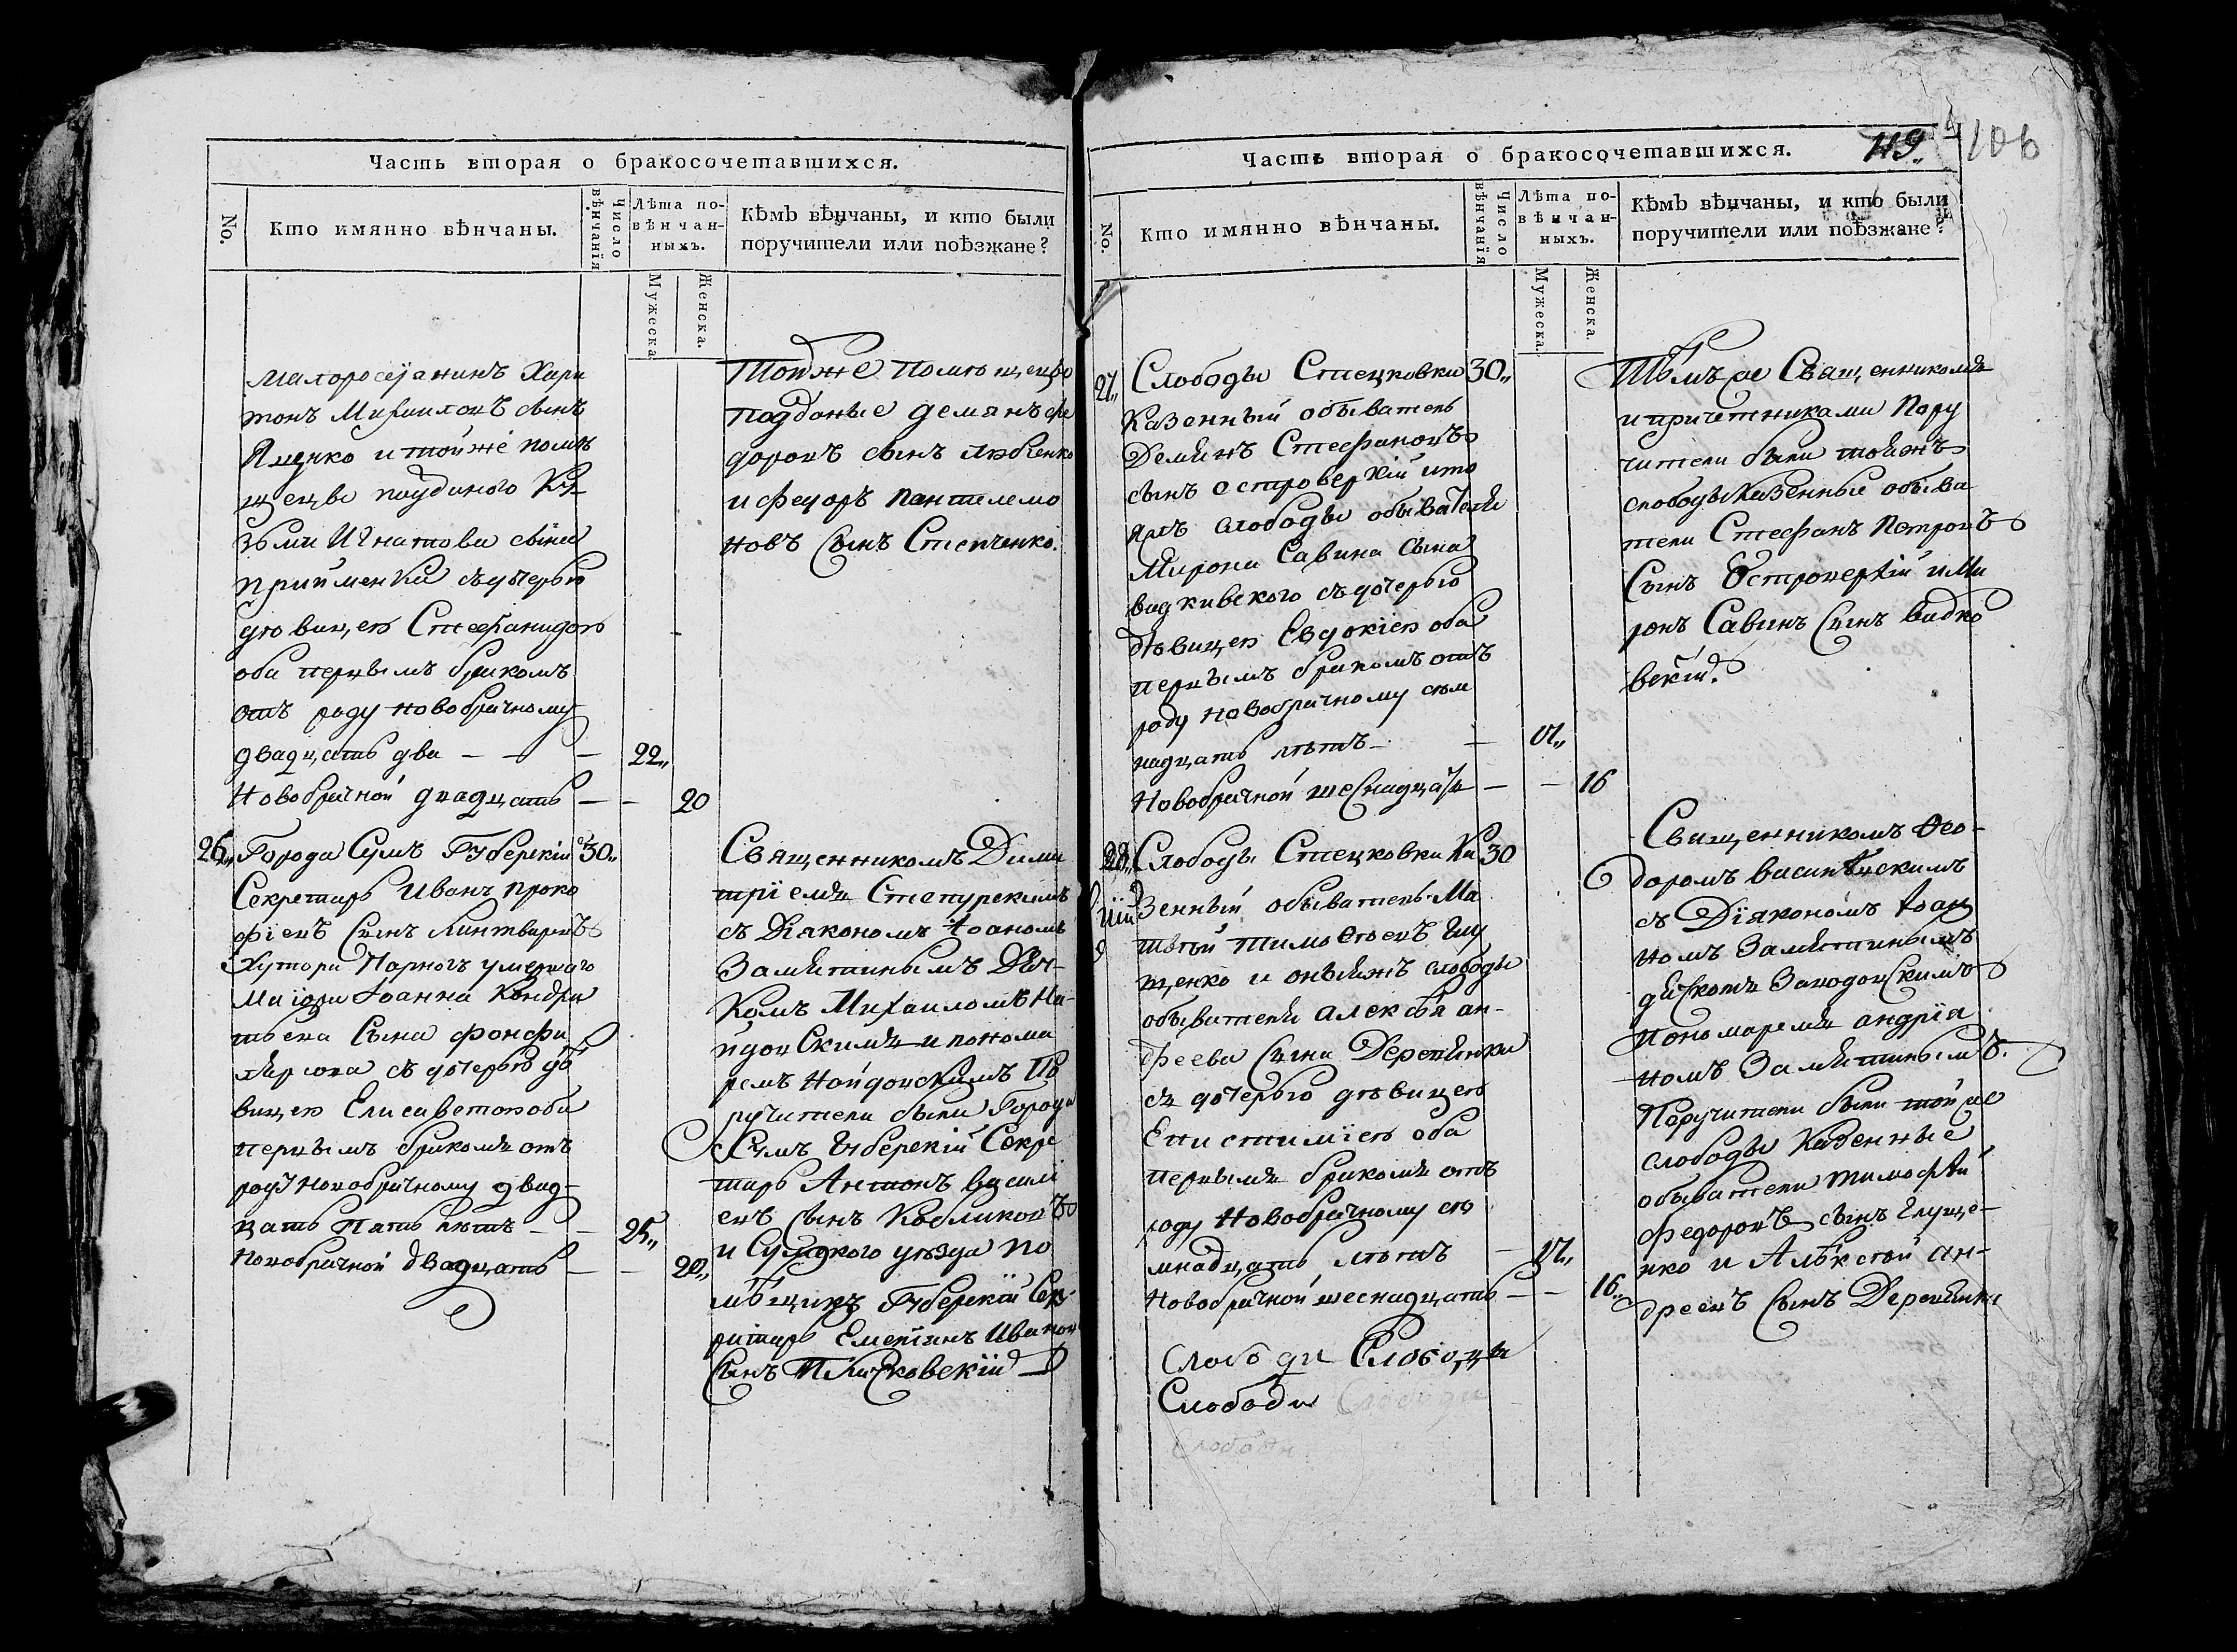 Часть вторая о бракосочетавшихся.
No.
Кто имянно вѣнчаны.
Число вѣнчанія
Лѣта по-
вѣнчан-
ныхъ.
Мужеска
Женска.
Кѣмъ вѣнчаны, и кто были
поручители или поѣзжане?
Малоросіянинъ Хари
тонъ Михаиловъ сынъ
Яценко и тойже помѣ
щецы подданого
Игнатова сына
съ дочерью
дѣвицею Стефанидою
оба первымъ бракомъ
отъ роду новобрачному
двадцать два — — — 22„
Новобрачной двадцать — — 20
Тойже помѣщецы
подданые Демянъ Фе
доровъ сынъ
и Федоръ Пантелемо
новъ Сынъ Степченко.
26„ Города Сумъ Губерскій 30„
Секретарь Иванъ Проко
фіевъ Сынъ Линтваревъ
Хутора умершаго
Маіора Іоанна Кондра
тьева Сына
съ дочерью дѣ
вицею Елисаветою оба
первымъ бракомъ отъ
роду новобрачному двад-
цать пять лѣтъ — — 25„
Новобрачной двадцать — — 20„
Священникомъ Дими
тріемъ Степурскимъ
съ Діякономъ Іоаномъ
Замятинымъ Дяч-
комъ Михаиломъ На-
йдовскимъ и понома
ремъ Найдовскимъ По
ручители были Города
Сумъ Губерскій Секре
тарь Антонъ Васили
евъ сынъ Кобликовъ
и Сумского уѣзда по
мѣщикъ Губерскій Сек
ретарь Емелянъ Иванов
Сынъ
Часть вторая о бракосочетавшихся.
119„
106
No.
Кто имянно вѣнчаны.
Число вѣнчанія
Лѣта по-
вѣнчан-
ныхъ.
Мужеска.
Женска.
Кѣмъ вѣнчаны, и кто были
поручители или поѣзжане?
27„ Слободы Стецковки 30„
Казенный обыватель
Демянъ Стефановъ
сынъ Островерхій и то
яжъ слободы обывателя
Мирона Савина Сына
Видкивского съ дочерью
дѣвицею Евдокіею оба
первымъ бракомъ отъ
роду новобрачному сем
надцать лѣтъ — — 17„
Новобрачной шеснадцать — — 16
Тѣмъ же Священникомъ
и причетниками Пору
чители были тояжъ
слободы Казенные обыва
тели Стефанъ Петровъ
Сынъ Островерхій и Ми
ронъ Савинъ Сынъ Видко
вскій.
28„ Слободы Стецковки Ка 30
зенный обыватель Ма
твій Тимофѣевъ
щенко и оныяжъ слободы
обывателя Алексѣя Ан-
дреева Сына Деревянки
съ дочерью дѣвицею
Епистиміею оба
первымъ бракомъ отъ
роду Новобрачному се
мнадцать лѣтъ — 17„
Новобрачной шеснадцать — — 16„
Священникомъ Ѳео-
доромъ
съ Діякономъ Іоан
номъ Замятинымъ
дячкомъ Заводовскимъ
Пономаремъ Андрія
номъ Замятинымъ.
Поручители были той же
слободы Казенные
обыватели Тимофѣй
Федоровъ сынъ Глуще-
нко и Алѣксѣй Ан-
дреевъ Сынъ Деревянка
Слободи Слободи
Слободи Слободи
Слободи